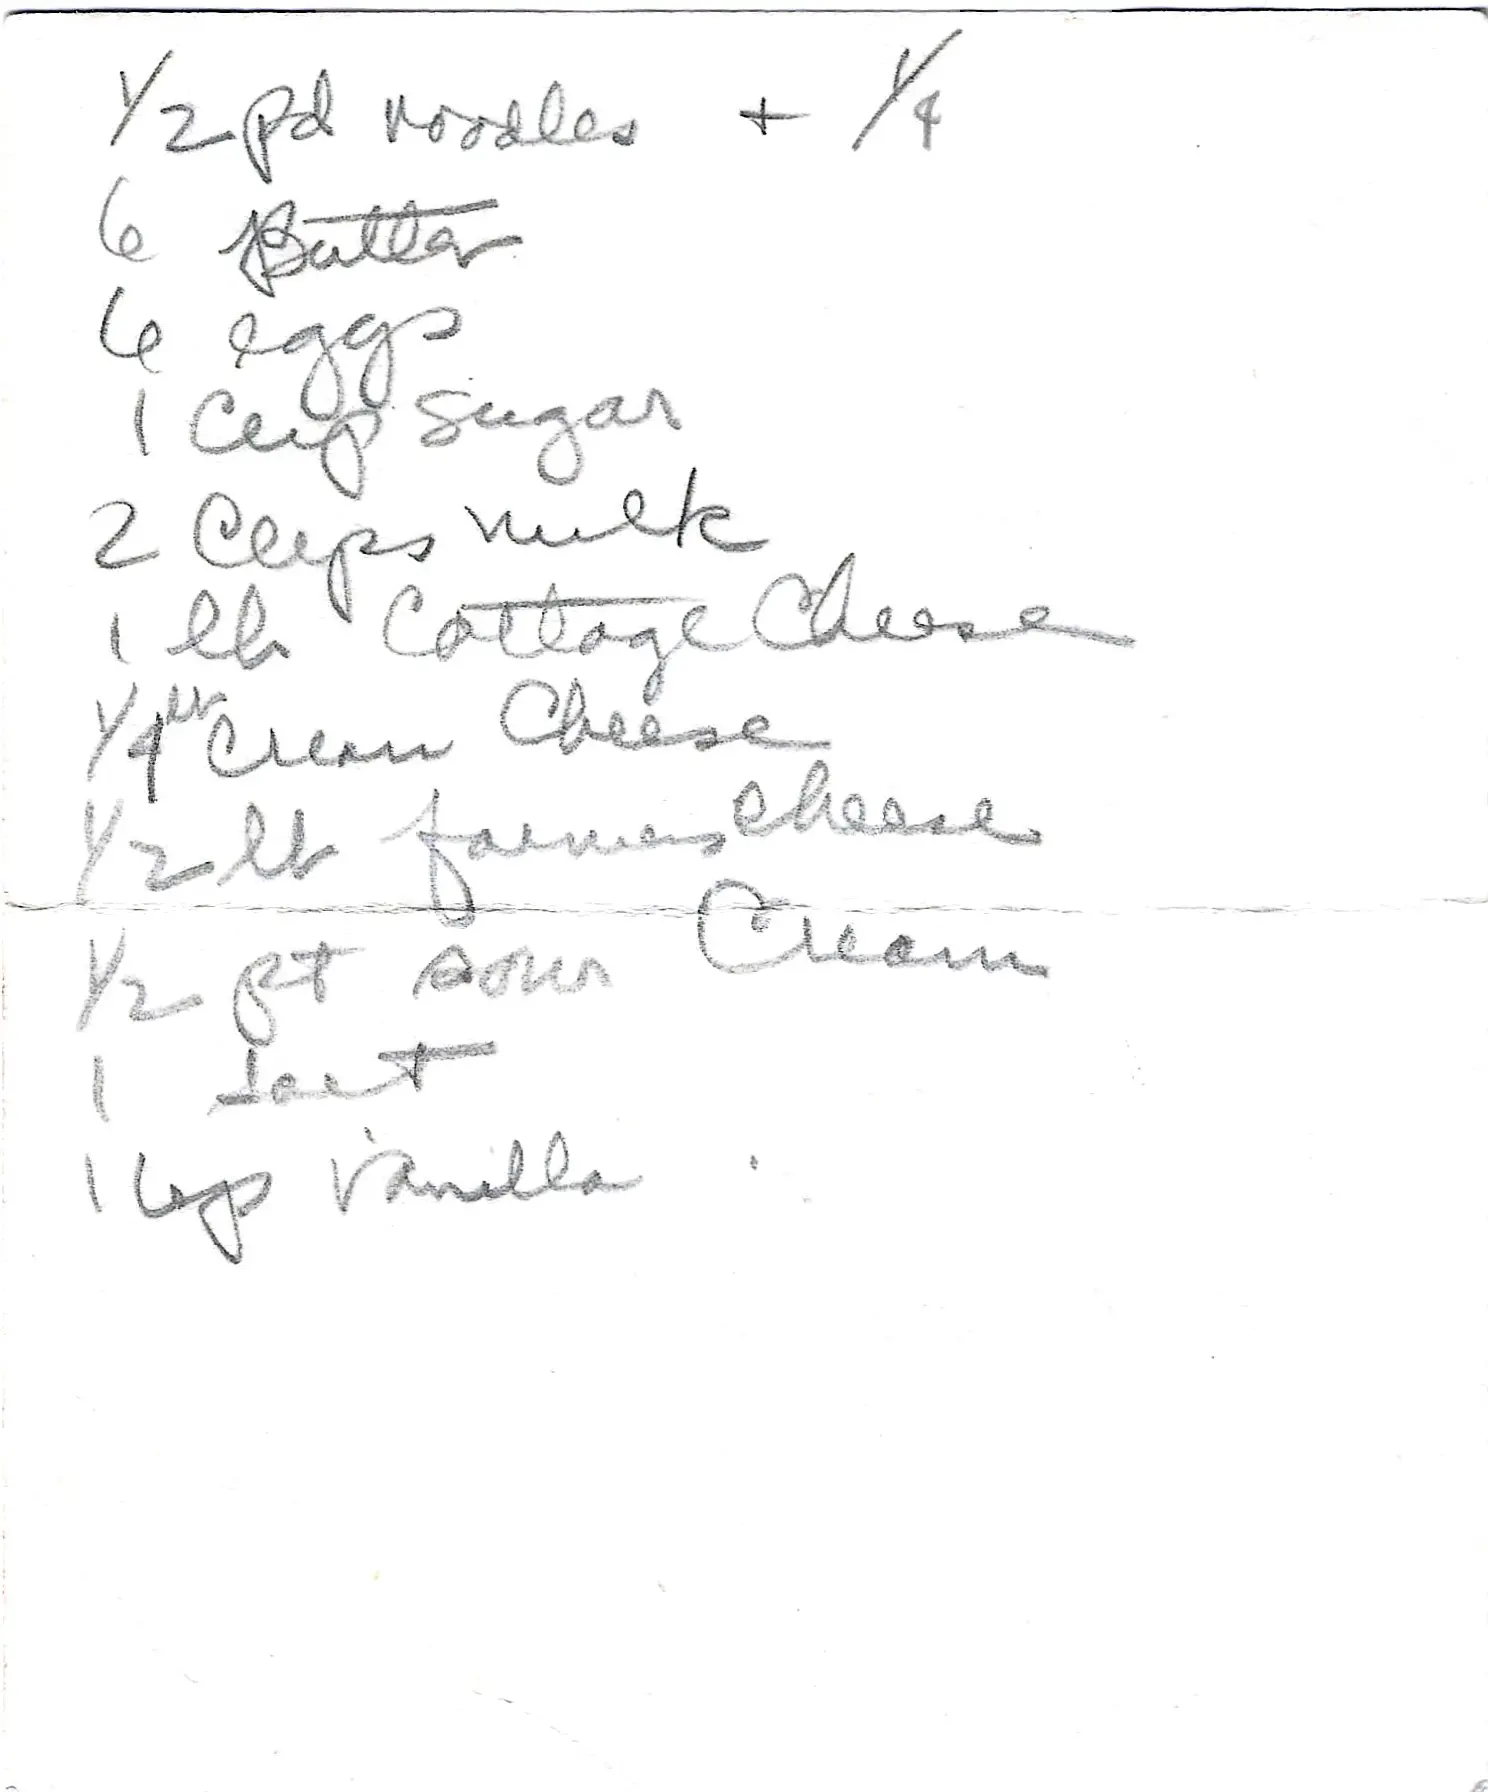 1/2 pd noodles + 1/4
6 Butter
6 eggs
1 Cup sugar
2 Cups milk
1 lb Cottage Cheese
1/4 lb Cream Cheese
1/2 lb farmers cheese
1/2 pt sour Cream
1 salt
1 vanilla